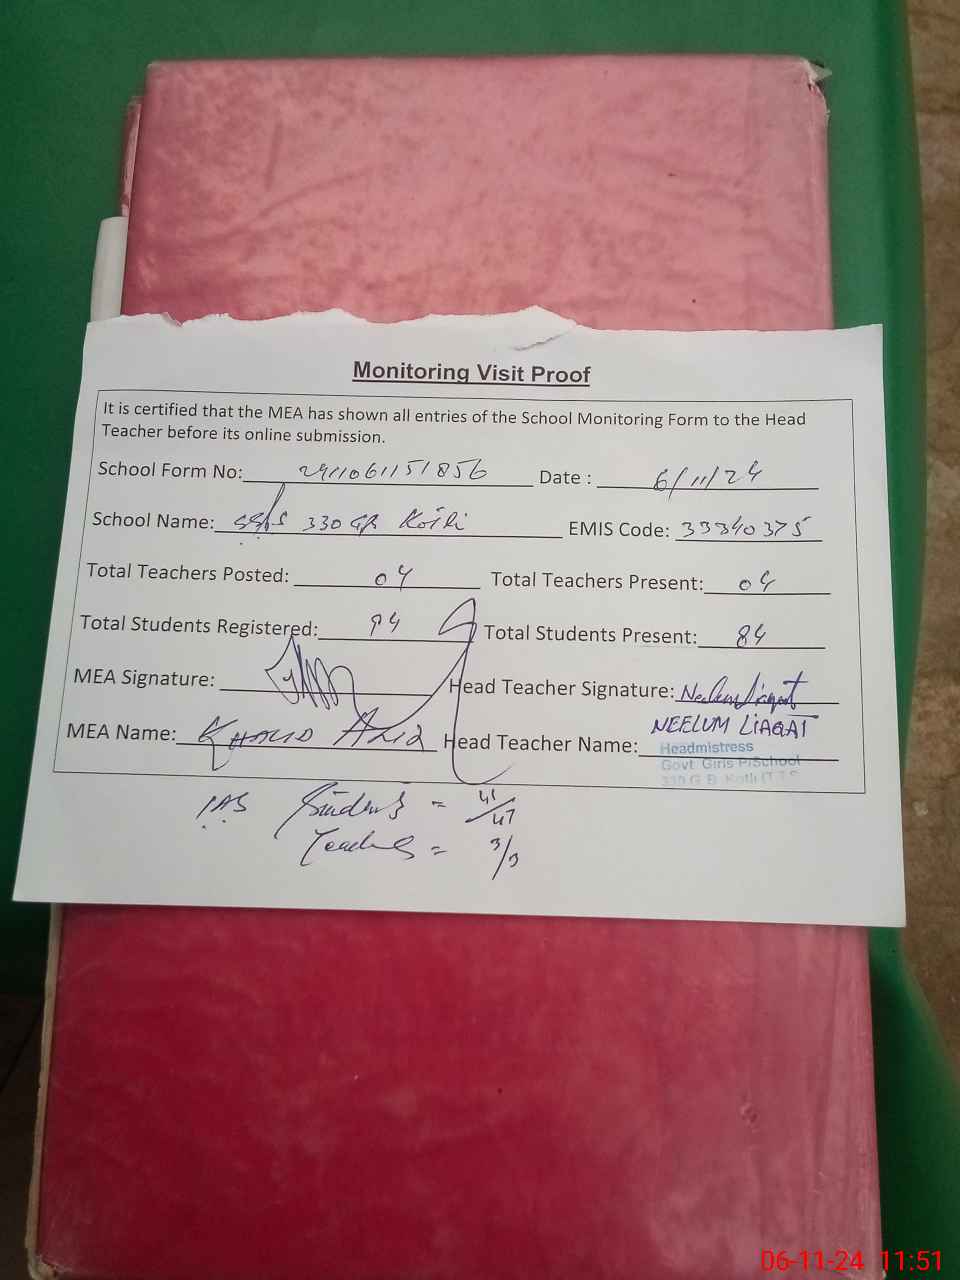 Monitoring Visit Proof
It is certified that the MEA has shown all entries of the School Monitoring Form to the Head
Teacher before its online submission.
School Form No: 2911061151856 Date : 6/11/24
School Name: 330 GB Kotli EMIS Code: 33340375
Total Teachers Posted: 04 Total Teachers Present: 04
Total Students Registered: 94 Total Students Present: 84
MEA Signature: Head Teacher Signature: Neelum Liaqat
MEA Name: KHALID AZIZ Head Teacher Name: NEELUM LIAQAT
Headmistress
Govt Girls P/School
330 G B Kotli
Students = 41/47
Teachers = 3/3
06-11-24 11:51